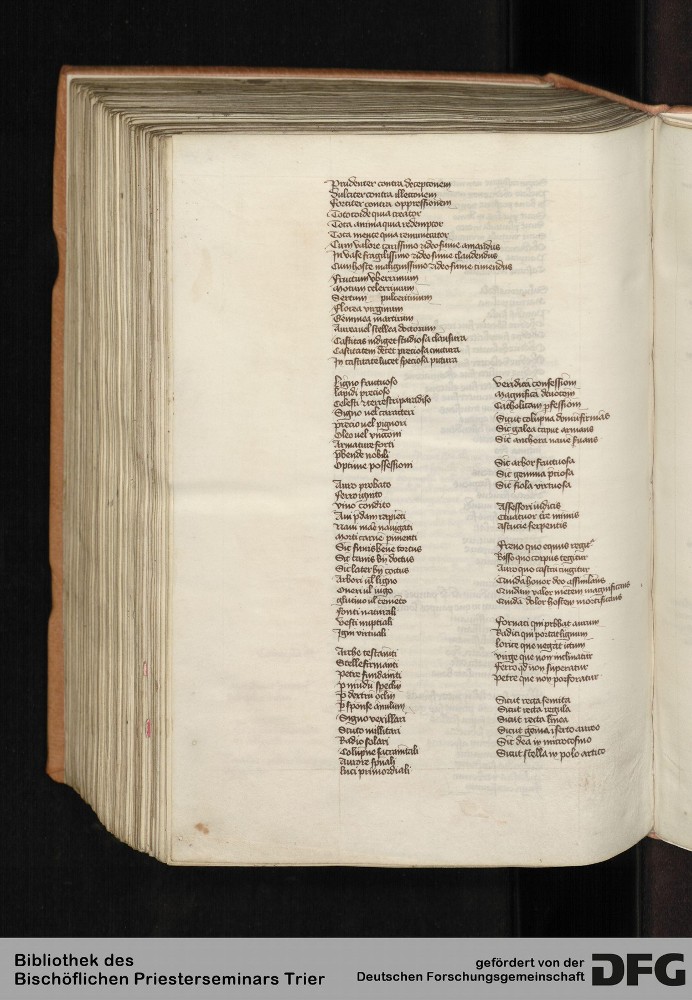 Prudenter contra deceptonem
Dulciter contra illectonem
Fortiter contra oppressionem
Toto corde quia creator
Tota anima quia redemptor
Tota mente quia remunerator
Cum valore carissimo ideo sume amandus
In vase fragilissimo ideo sume claudendus
Cum hoste malignissimo ideo sume timendus
Fructum uberrimum
Motum celerrimum
Sertum pulcerrimum
Florea virginum
Gemmea martirum
Aurea vel stellea doctorum
Castitas indiget studiosa clausura
Castitatem decet preciosa cinctura
In castitate lucet speciosa pictura
Ligno fructuoso
Lapidi precioso
Celesti & terrestri paradiso
Signo uel caracteri
Precio uel pignori
Oleo uel unctoni
Armature forti
pbende nobili
Optime possessioni
Auro probato
Ferro ignito
Vino condito
Aui pdam rapienti
Naui navigati
Morti carne pimenti
Sic funis bene tortus
Sic canis bn doctus
Sic later bn coctus
Arbori ul ligno
Oneri ul iugo
glutino ul cemeto
Fonti naturali
Vesti nuptiali
Igni virtuali
Arche testamti
Stelle firmamti
Petre fundamti
p mudu speclu
p dextru oclm
p sponse anulum
Signo vexillari
Scuto militari
Radio solari
Colupne
Aurore
Luci primordiali
Veridica confessioni
Magnifica deuotoni
Catholicam pfessioni
Sicut colupna domu firmans
Sic galea caput armans
Sic anchora naue
Sic arbor fructuosa
Sic gemma pciosa
Sic fiola virtuosa
Assessori iudicis
astucie serpentis
Freno quo equus regit
Bisso quo corpus tegitur
Auro quo castra cingitur
Cuida honor deo assimilans
Cuidam valor mietem magnificans
Cuida dolor hostem mortificans
Fornaci que pbat aurum
Radici que portat lignum
Lorice que negat ictum
Virge que non inclinatur
Ferro qd non superatur
Petre que non perforatur
Sicut recta semita
Sicut recta regula
Sicut recta linea
Sicut gema i serto aureo
Sic dea in microcosmo
Sicut stella in polo artico
Bibliothek des
Bischöflichen Priesterseminars Trier
gefördert von der
Deutschen Forschungsgemeinschaft
DFG